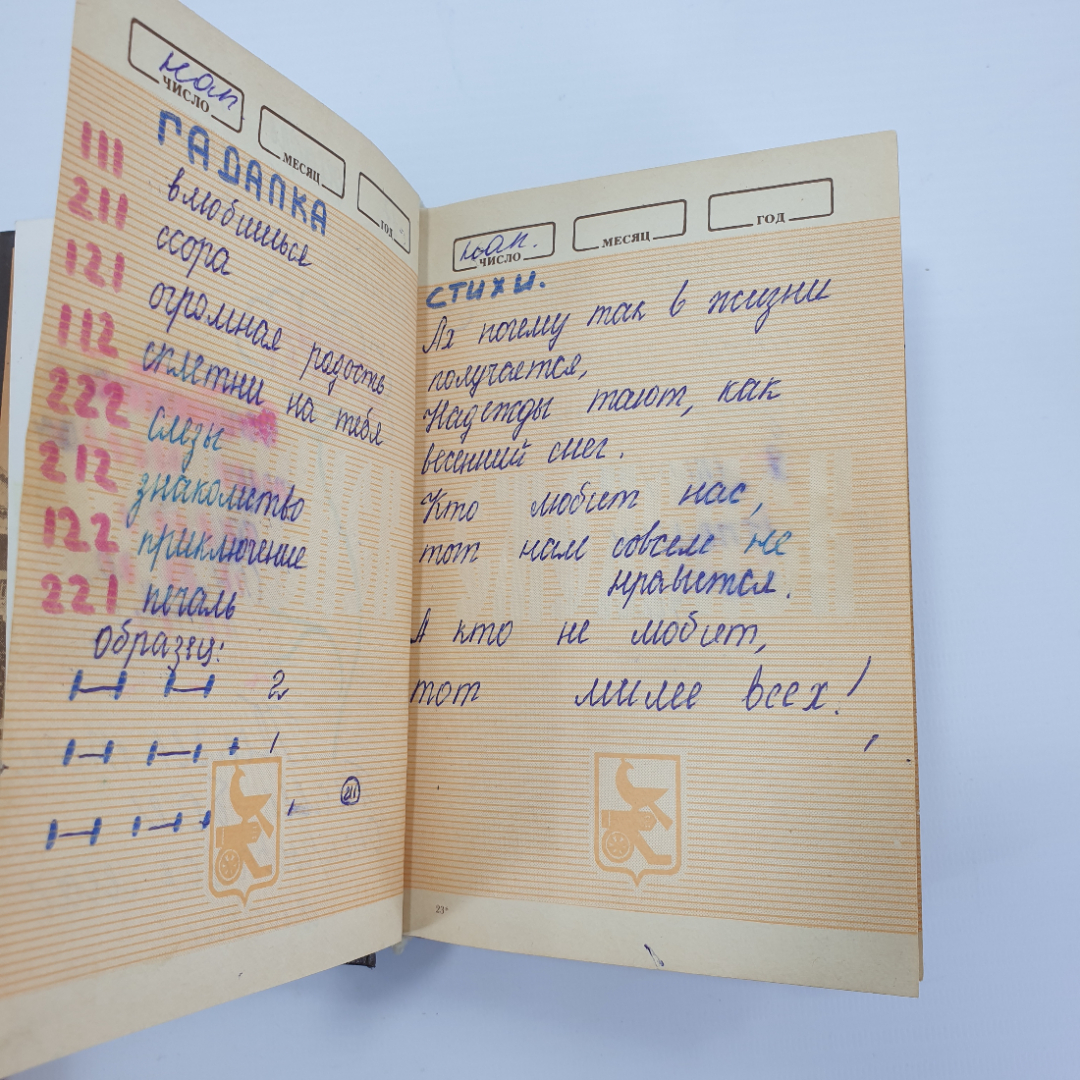 нап
ЧИСЛО
МЕСЯЦ
ГОД
ГАДАЛКА
111 влюбишься
211 ссора
121 огромная радость
112 сплетни на тебя
222 слезы
212 знакомство
122 приключение
221 печаль
образец:
2
+ 1
+
211
нап.
ЧИСЛО
МЕСЯЦ
ГОД
СТИХИ.
Ах почему так в жизни
получается,
Надежды тают, как
весенний снег.
Кто любит нас,
тот нам совсем не
нравится.
А кто не любит,
тот милее всех!
23*